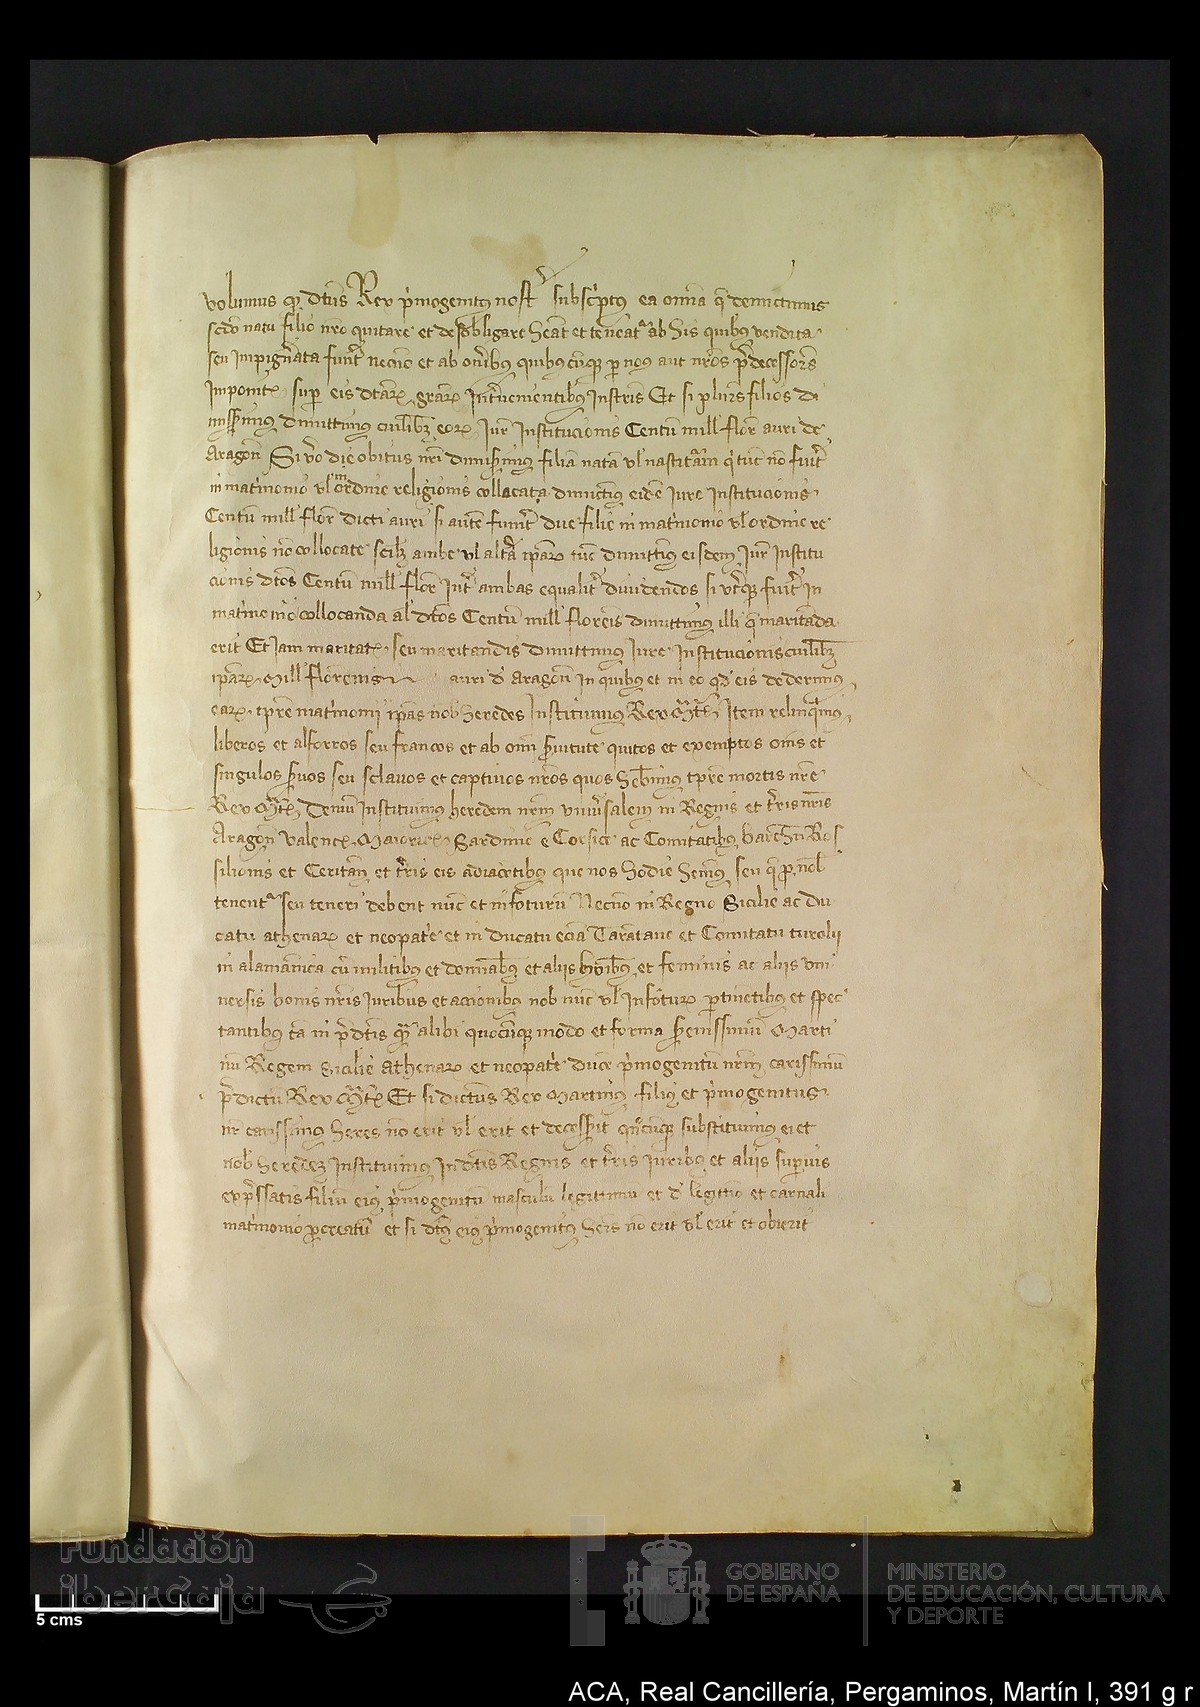 volumus qd dictus Rex pmogenitus nost subscriptus ea omnia q dimittimus
scdo natu filio nro quitare et desobligare heat et teneat ab his quibus vendita
seu impignata funt necno et ab onibus quibuscuqz p nos aut nros pdecessors
impoitz sup eis dtarz grarz inteuenientibus instris Et si plurs filios di
mispimus dimittimus cuilibz eorz Jur Institucionis Centu mill flor auri de
Aragon Si vo die obitus nri dimispimus filia nata vl nascitura q tuc no fuit
in matimonio vl in ordine religionis collacata dimictimus eide Jure Institucionis
Centu mill flor dicti auri si aute funt due filie in matimonio vl ordine re
ligionis no collocate scilz ambe vl alta iparz tuc dimittimus eisdem Jur Institu
cionis dtos Centu mill flor Int ambas equalit dividendos si utqz fuit in
matimonio collocanda al dtos Centu mill floreis dimittimus illi q maritada
erit Et Jam maritatz seu maritandis dimittimus Jure Institucionis cuilibz
iparz mill florenis auri d Aragon in quibus et in eo qd eis dederimus
earz tpre matimonii ipas nob heredes Instituimus Rex Martz Item relinqimus
liberos et alforros seu francos et ab omi svitute quitos et exemptos oms et
singulos svos seu sclavos et captivos nros quos hebimus tpre mortis nre
Rex Martz Demu Instituimus heredem nrm univsalem in Regnis et tris nris
Aragon Valencz Maioricz Sardinie e Corsice ac Comitatibus barchn Ros
silionis et Ceritan et tris eis adiacetibus que nos hodie henus seu q p nob
tenent seu teneri debent nuc et infoturu Necno in Regno Sicilie ac Du
catu athenarz et neopatre et in Ducatu ecia Taratane et Comitatu turolii
in alamanica cu militibus et domiabus et aliis hoibus et feminis ac aliis uni
versis bonis nris Juribus et accionibus nob nuc vl infoturz ptinetibus et spec
tantibus ta in pdtis qm alibi quocuqz modo et forma senissimu Marti
nu Regem Sicilie Athenarz et neopatre duce pmogenitu nrm carissimu
pdictu Rex Martz Et si dictus Rex Martinus filius et pmogenitus
nr carissimus heres no erit vl erit et decesserit qncuqz substituimus ei et
nob heredez instituimus in dtis Regnis et tris iuribus et aliis supius
expssatis filiu eius pmogenitu masculu legittimu et d legittio et carnali
matimonio pcreatu et si dtus eius pmogenitus heres no erit vl erit et obierit
5 cms
Fundación
ibercaja
GOBIERNO
DE ESPAÑA
MINISTERIO
DE EDUCACIÓN, CULTURA
Y DEPORTE
ACA, Real Cancillería, Pergaminos, Martín I, 391 g r